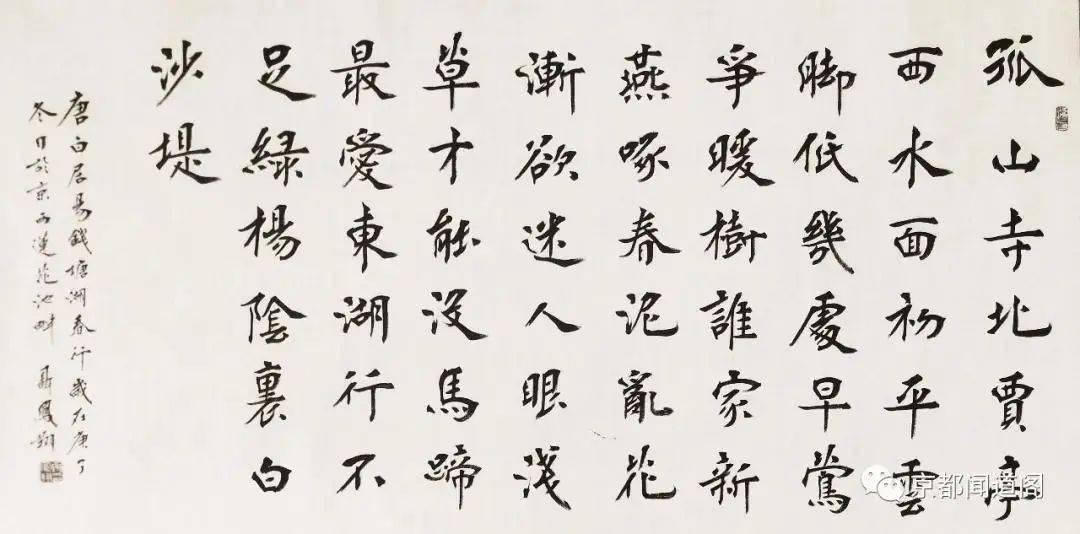 孤山寺北賈亭
西水面初平雲
脚低幾處早鶯
爭暖樹誰家新
燕啄春泥亂花
漸欲迷人眼淺
草才能没馬蹄
最愛東湖行不
足緑楊陰裏白
沙堤
唐白居易錢塘湖春行歲在庚子
冬日於京西蓮花池畔
京都闻道阁